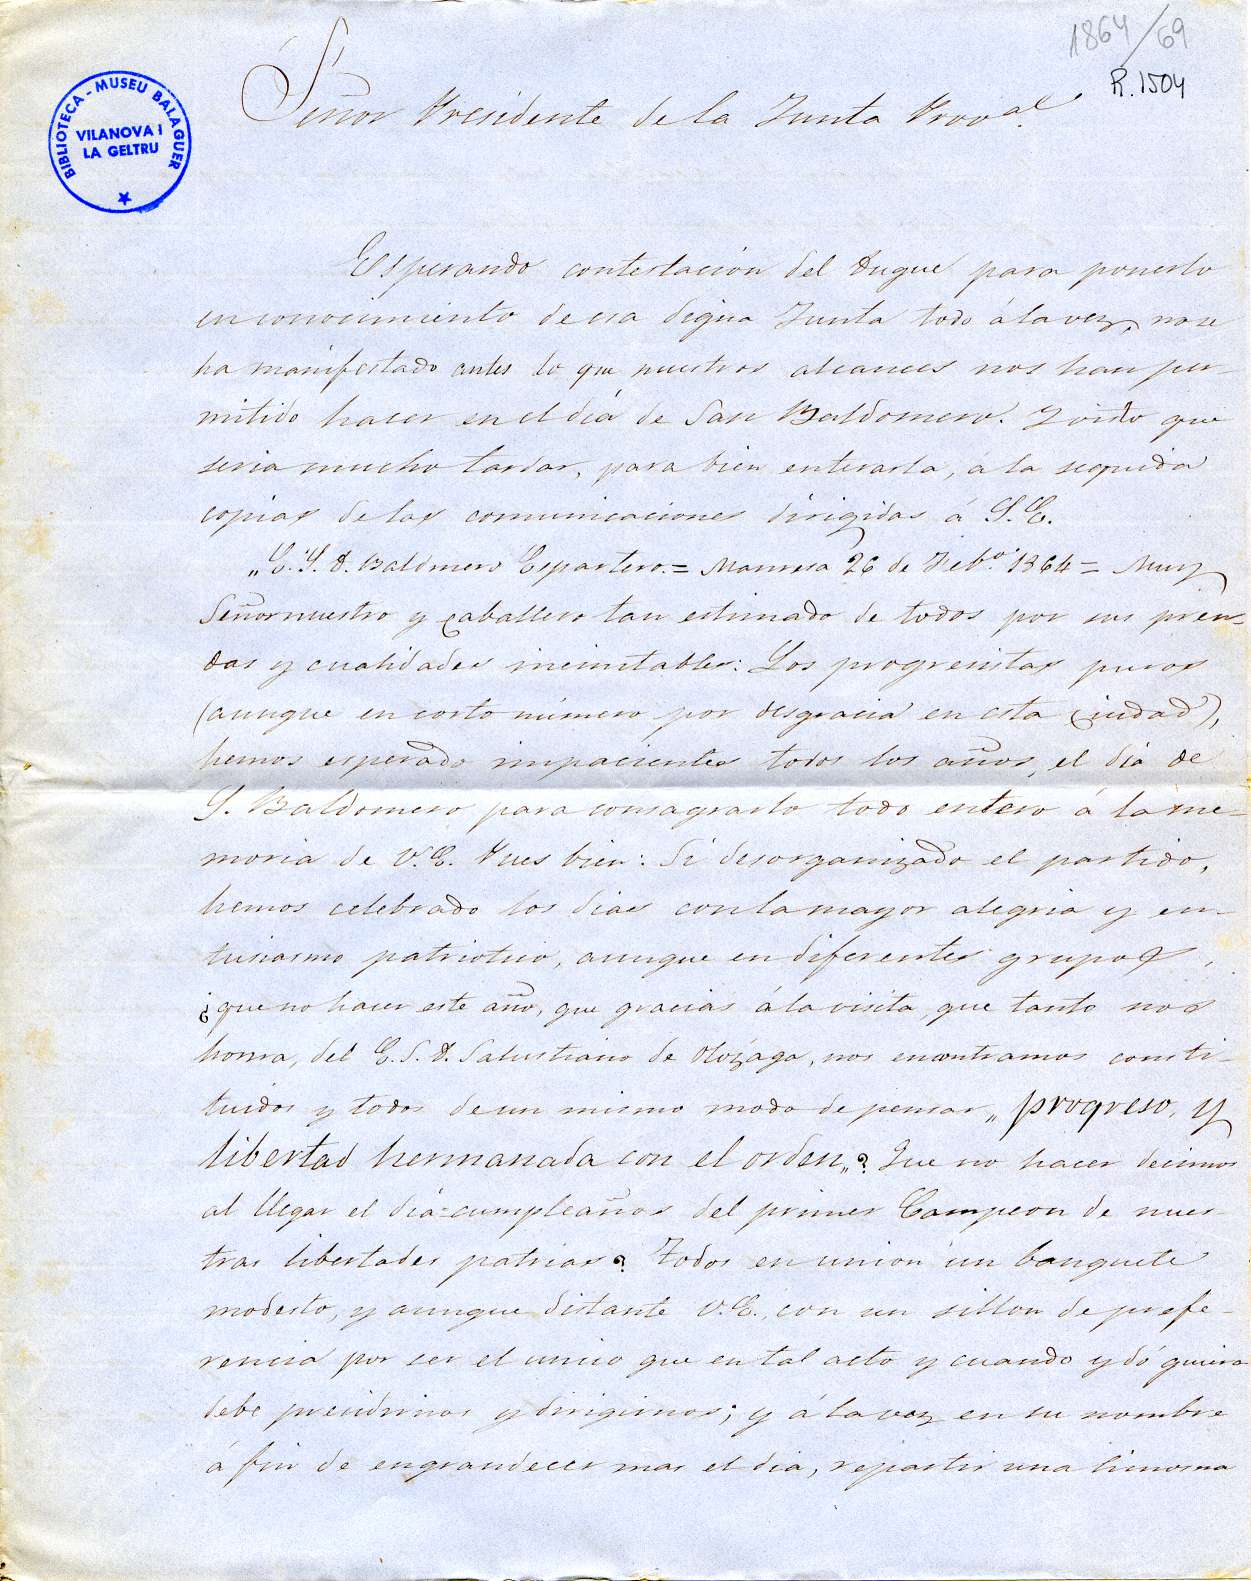 1864/69
R.1504
BIBLIOTECA - MUSEU BALAGUER
VILANOVA I
LA GELTRU
Señor Presidente de la Junta Proval.
Esperando contestacion del Duque para ponerlo
en conocimiento de esa digna Junta todo á la vez, no se
ha manifestado antes lo que nuestros alcances nos han per-
mitido hacer en el dia de San Baldomero. Y visto que
seria mucho tardar, para bien enterarla, á la seguida
copias de las comunicaciones dirigidas á S.E.
„E.S.D. Baldomero Espartero.= Manresa 26 de Febo. 1864 = Muy
Señor nuestro y caballero tan estimado de todos por sus pren-
das y cualidades inimitables: Los progresistas puros
(aunque en corto número por desgracia en esta ciudad),
hemos esperado impacientes todos los años, el dia de
S. Baldomero para consagrarlo todo entero á la me-
moria de V.E. Pues bien: Si desorganizado el partido,
hemos celebrado los dias con la mayor alegria y en-
tusiasmo patriotico, aunque en diferentes grupos,
¿que no hacer este año, que gracias á la visita, que tanto nos
honra, del E.S.D. Salustiano de Olózaga, nos encontramos consti-
tuidos y todos de un mismo modo de pensar „progreso, y
libertad hermanada con el orden„? Que no hacer decimos
al llegar el dia-cumpleaños del primer Campeon de nues-
tras libertades patrias? Todos en union un banquete
modesto, y aunque distante V.E., con un sillon de prefe-
rencia por ser el unico que en tal acto y cuando y dó quiera
debe presidirnos y dirigirnos; y á la vez en su nombre
á fin de engrandecer mas el dia, repartir una limosna